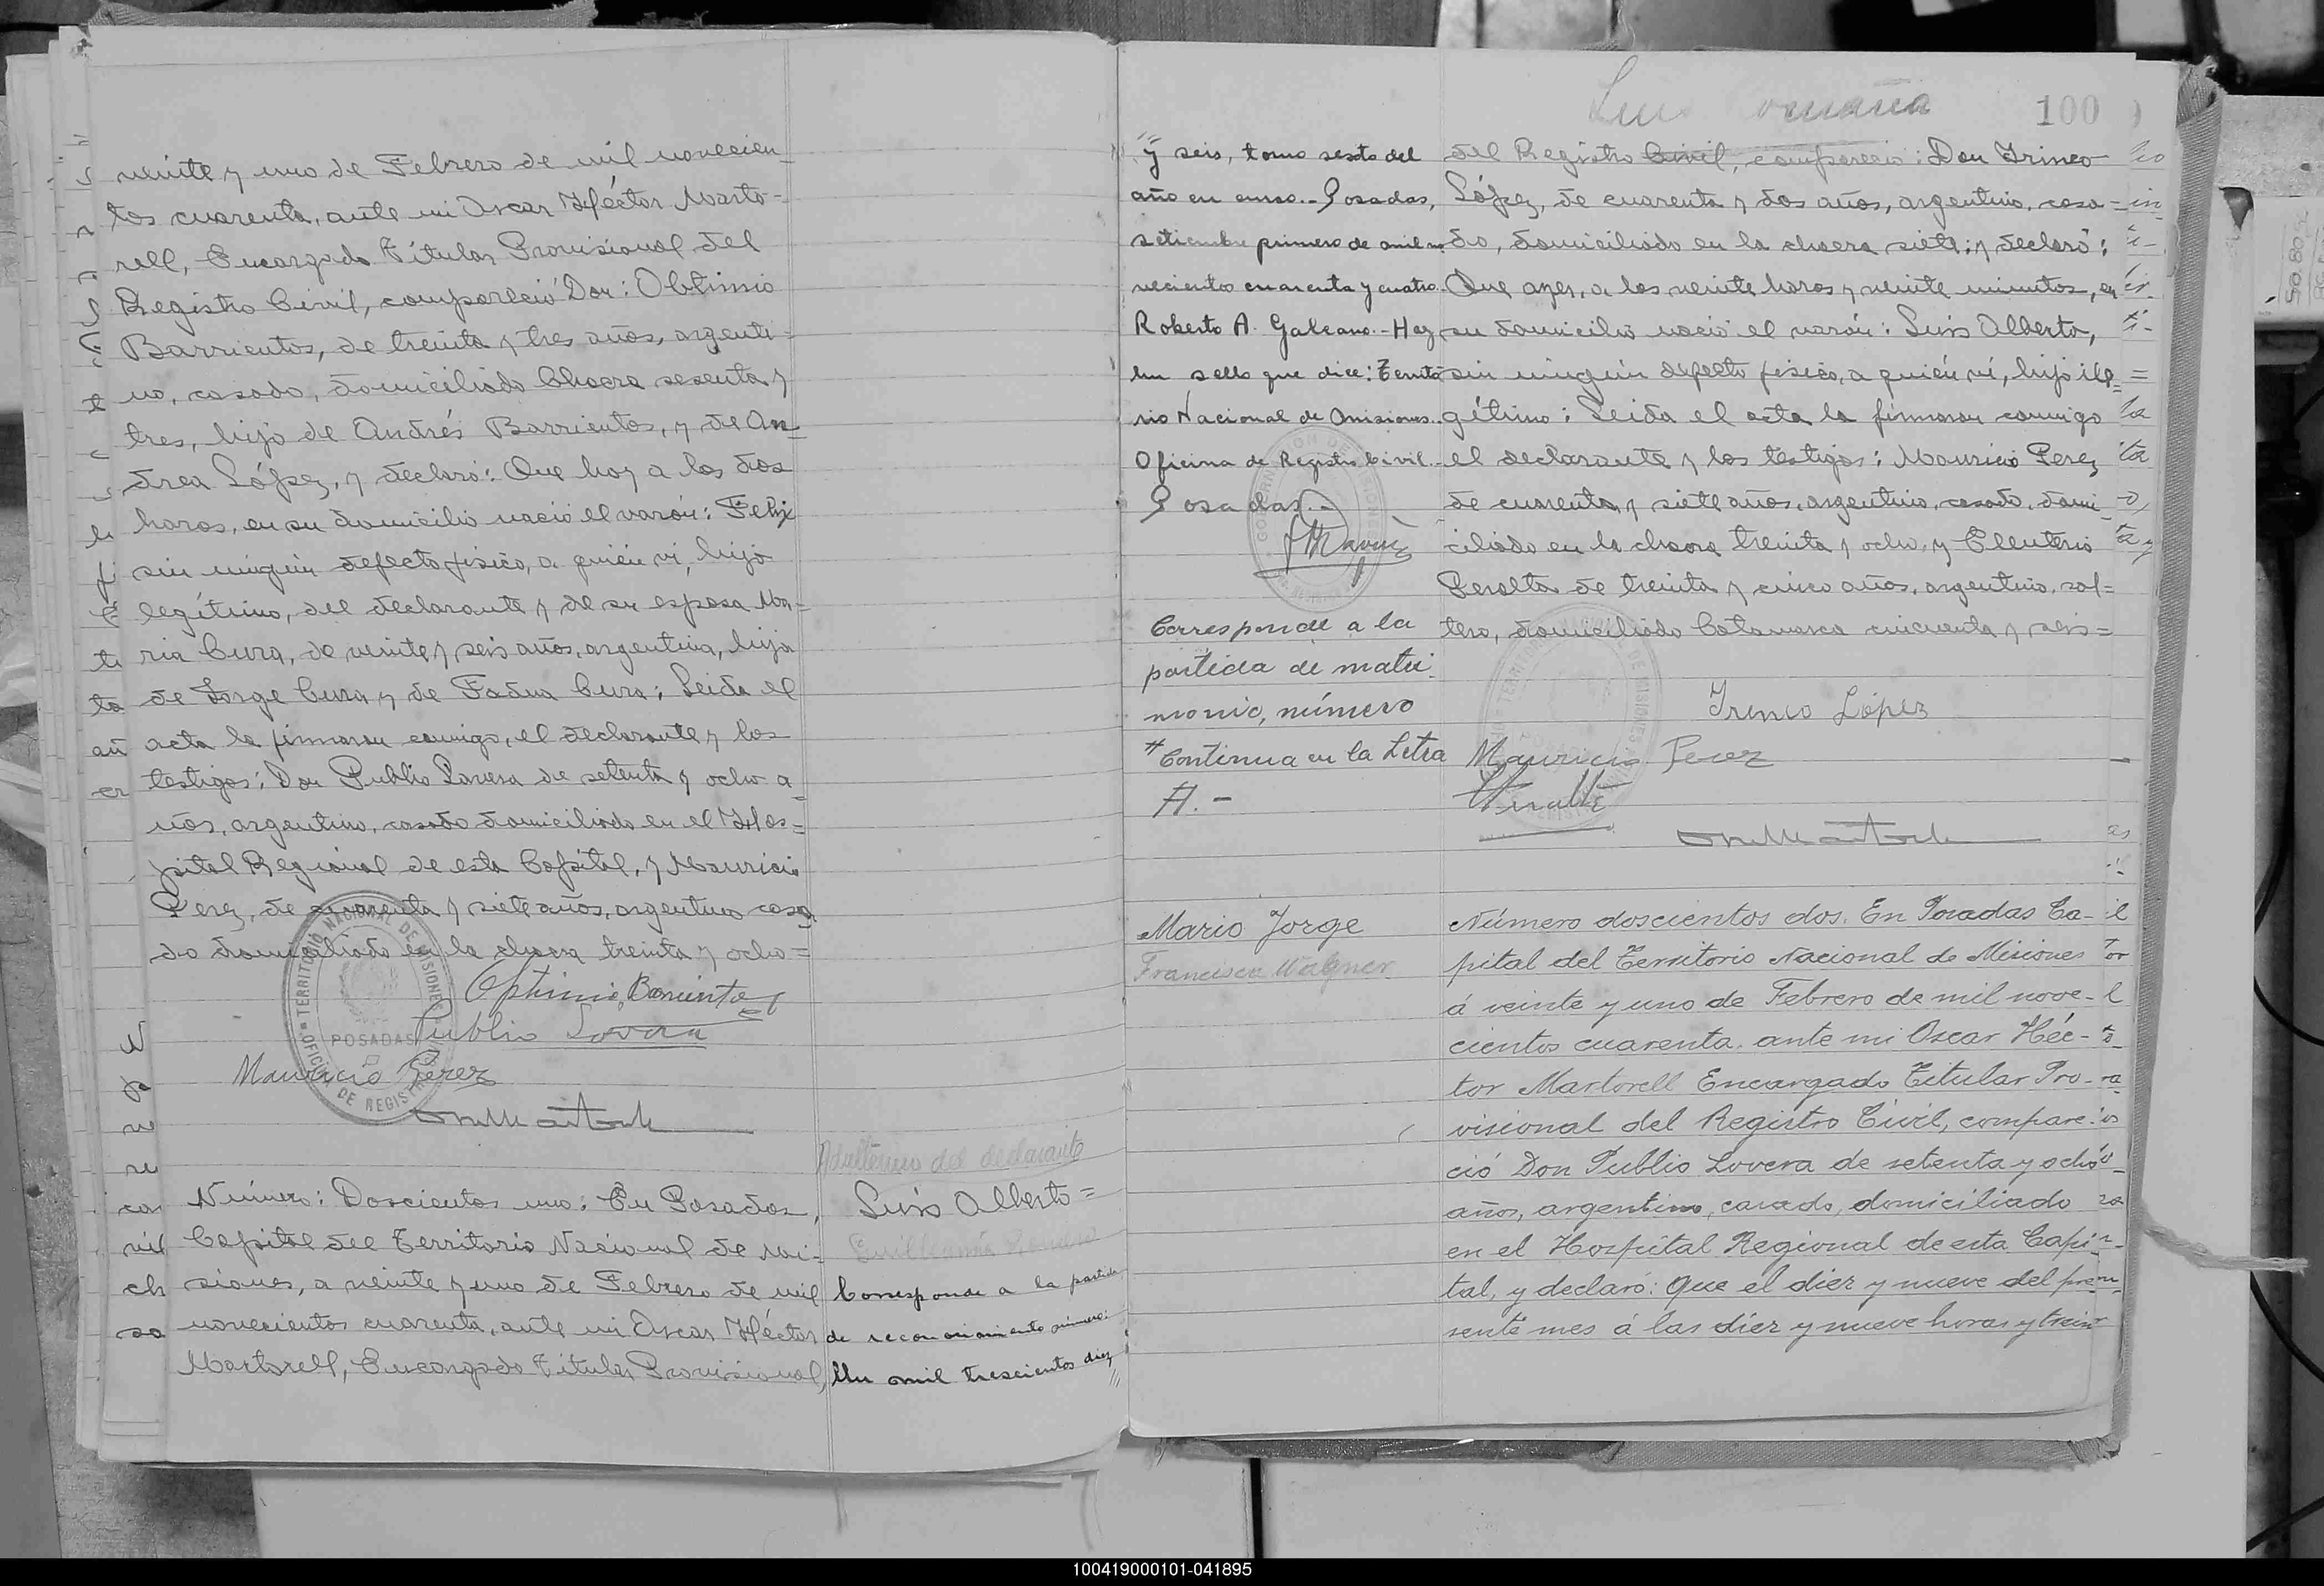 veinte y uno de Febrero de mil novecien_
tos cuarenta, ante mi Oscar Héctor Marto=
rell, Encargado Titular Provisional del
Registro Civil, compareció Don: Obtimio
Barrientos, de treinta y tres años, argenti=
no, casado, domiciliado Chacra sesenta y
tres, hijo de Andrés Barrientos, y de An_
drea López, y declaró: Que hoy a las dos
horas, en su domicilio nació el varón: Felix
sin ningún defecto fisico, a quién vi, hijo
legítimo, del declarante y de su esposa Ma=
ria Cura, de veinte y seis años, argentina, hija
de Jorge Cura y de Fadua Cura; Leida el
acta la firmaron conmigo, el declarante y los
testigos: Don Publio Lovera de setenta y ocho a_
ños, argentino, casado domiciliado en el Hos=
pital Regional de esta Capital, y Mauricio
Perez, de cuarenta y siete años, argentino casa
do domiciliado en la chacra treinta y ocho=
Optimio Barrientos
Publio Lovera
Mauricio Perez
TERRITORIO NACIONAL DE MISIONES
POSADAS
OFICINA DE REGISTRO
Número: Doscientos uno: En Posadas,
Capital del Territorio Nacional de Mi=
siones, a veinte y uno de Febrero de mil
novecientos cuarenta, ante mi Oscar Héctor
Martorell, Encargado Titular Provisional,
del declarante
Luis Alberto=
Corresponde a la partida
de reconocimiento número:
Un mil trescientos diez
100
y seis, tomo sexto del
año en curso.- Posadas,
setiembre primero de mil no
vecientos cuarenta y cuatro.
Roberto A. Galeano.- Hay
un sello que dice: Territo
rio Nacional de Misiones.
Oficina de Registro Civil.
Posadas.-
Corresponde a la
partida de matri_
monio, número
#Continua en la Letra
A.-
del Registro Civil, compareció: Don Irineo
López, de cuarenta y dos años, argentino, casa=
do, domiciliado en la chacra siete; y declaró:
Que ayer, a las veinte horas y veinte minutos, en
su domicilio nació el varón: Luis Alberto,
sin ningún defecto fisico, a quién vi, hijo ile=
gítimo: Leida el acta la firmaron conmigo
el declarante y los testigos: Mauricio Perez
de cuarenta y siete años, argentino, casado, domi_
ciliado en la chacra treinta y ocho, y Eleuterio
Peralta de treinta y cinco años, argentino, sol=
tero, domiciliado Catamarca cincuenta y seis=
Irineo López
Mauricio Perez
Mario Jorge
Francisco Wagner
Número doscientos dos. En Posadas Ca-
pital del Territorio Nacional de Misiones
á veinte y uno de Febrero de mil nove-
cientos cuarenta. ante mi Oscar Héc-
tor Martorell Encargado Titular Pro-
visional del Registro Civil, compare-
ció Don Publio Lovera de setenta y ocho
años, argentino, casado, domiciliado
en el Hospital Regional de esta Capi-
tal, y declaró: Que el diez y nueve del pre-
sente mes á las diez y nueve horas y trein
100419000101-041895